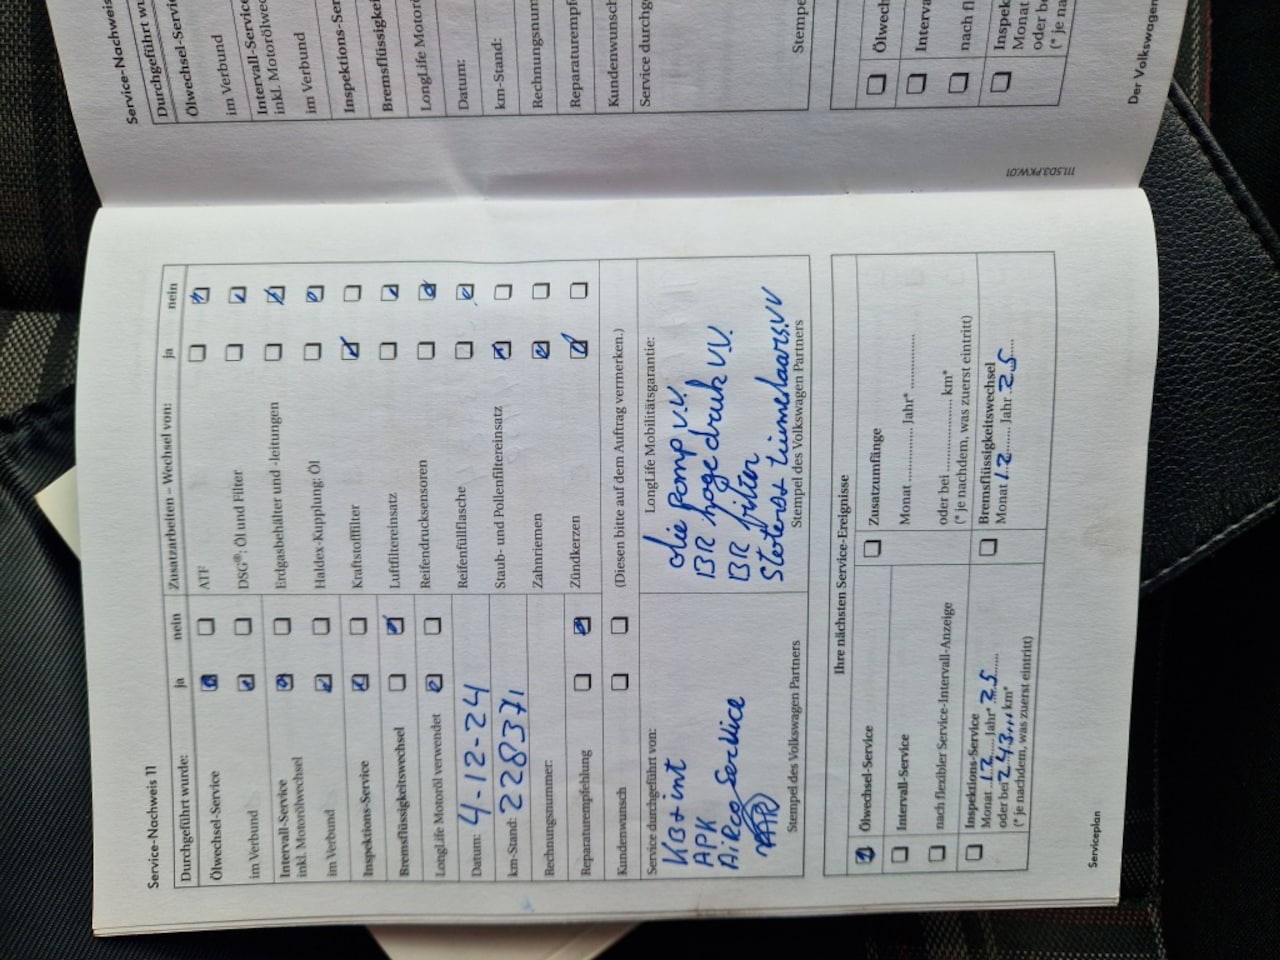 Service-Nachweis 11
Durchgeführt wurde: ja nein
Ölwechsel-Service
im Verbund
Intervall-Service
inkl. Motorölwechsel
im Verbund
Inspektions-Service
Bremsflüssigkeitswechsel
LongLife Motoröl verwendet
Datum: 4-12-24
km-Stand: 228371
Rechnungsnummer:
Reparaturempfehlung
Kundenwunsch
(Diesen bitte auf dem Auftrag vermerken.)
Zusatzarbeiten – Wechsel von: ja nein
ATF
DSG®: Öl und Filter
Erdgasbehälter und -leitungen
Haldex-Kupplung: Öl
Kraftstofffilter
Luftfiltereinsatz
Reifendrucksensoren
Reifenfüllflasche
Staub- und Pollenfiltereinsatz
Zahnriemen
Zündkerzen
Service durchgeführt von:
int
APK
AiRco Service
Stempel des Volkswagen Partners
LongLife Mobilitätsgarantie:
olie pomp V.V.
BR hoge druk V.V.
BR filter
Stempel des Volkswagen Partners
Ihre nächsten Service-Ereignisse
Ölwechsel-Service
Intervall-Service
nach flexibler Service-Intervall-Anzeige
Inspektions-Service
Monat 12 Jahr* 25
oder bei 243... km*
(* je nachdem, was zuerst eintritt)
Zusatzumfänge
Monat ............ Jahr* ............
oder bei ............ km*
(* je nachdem, was zuerst eintritt)
Bremsflüssigkeitswechsel
Monat 12 Jahr 25
Serviceplan
Service-Nachweis
Durchgeführt wu
Ölwechsel-Servic
im Verbund
Intervall-Service
inkl. Motorölwec
im Verbund
Inspektions-Ser
Bremsflüssigkei
LongLife Motorö
Datum:
km-Stand:
Rechnungsnum
Reparaturempf
Kundenwunsch
Service durchge
Stempe
Ölwech
Interva
nach fl
Inspek
Monat
oder be
(* je na
Der Volkswagen
111.5D3.PKW.01